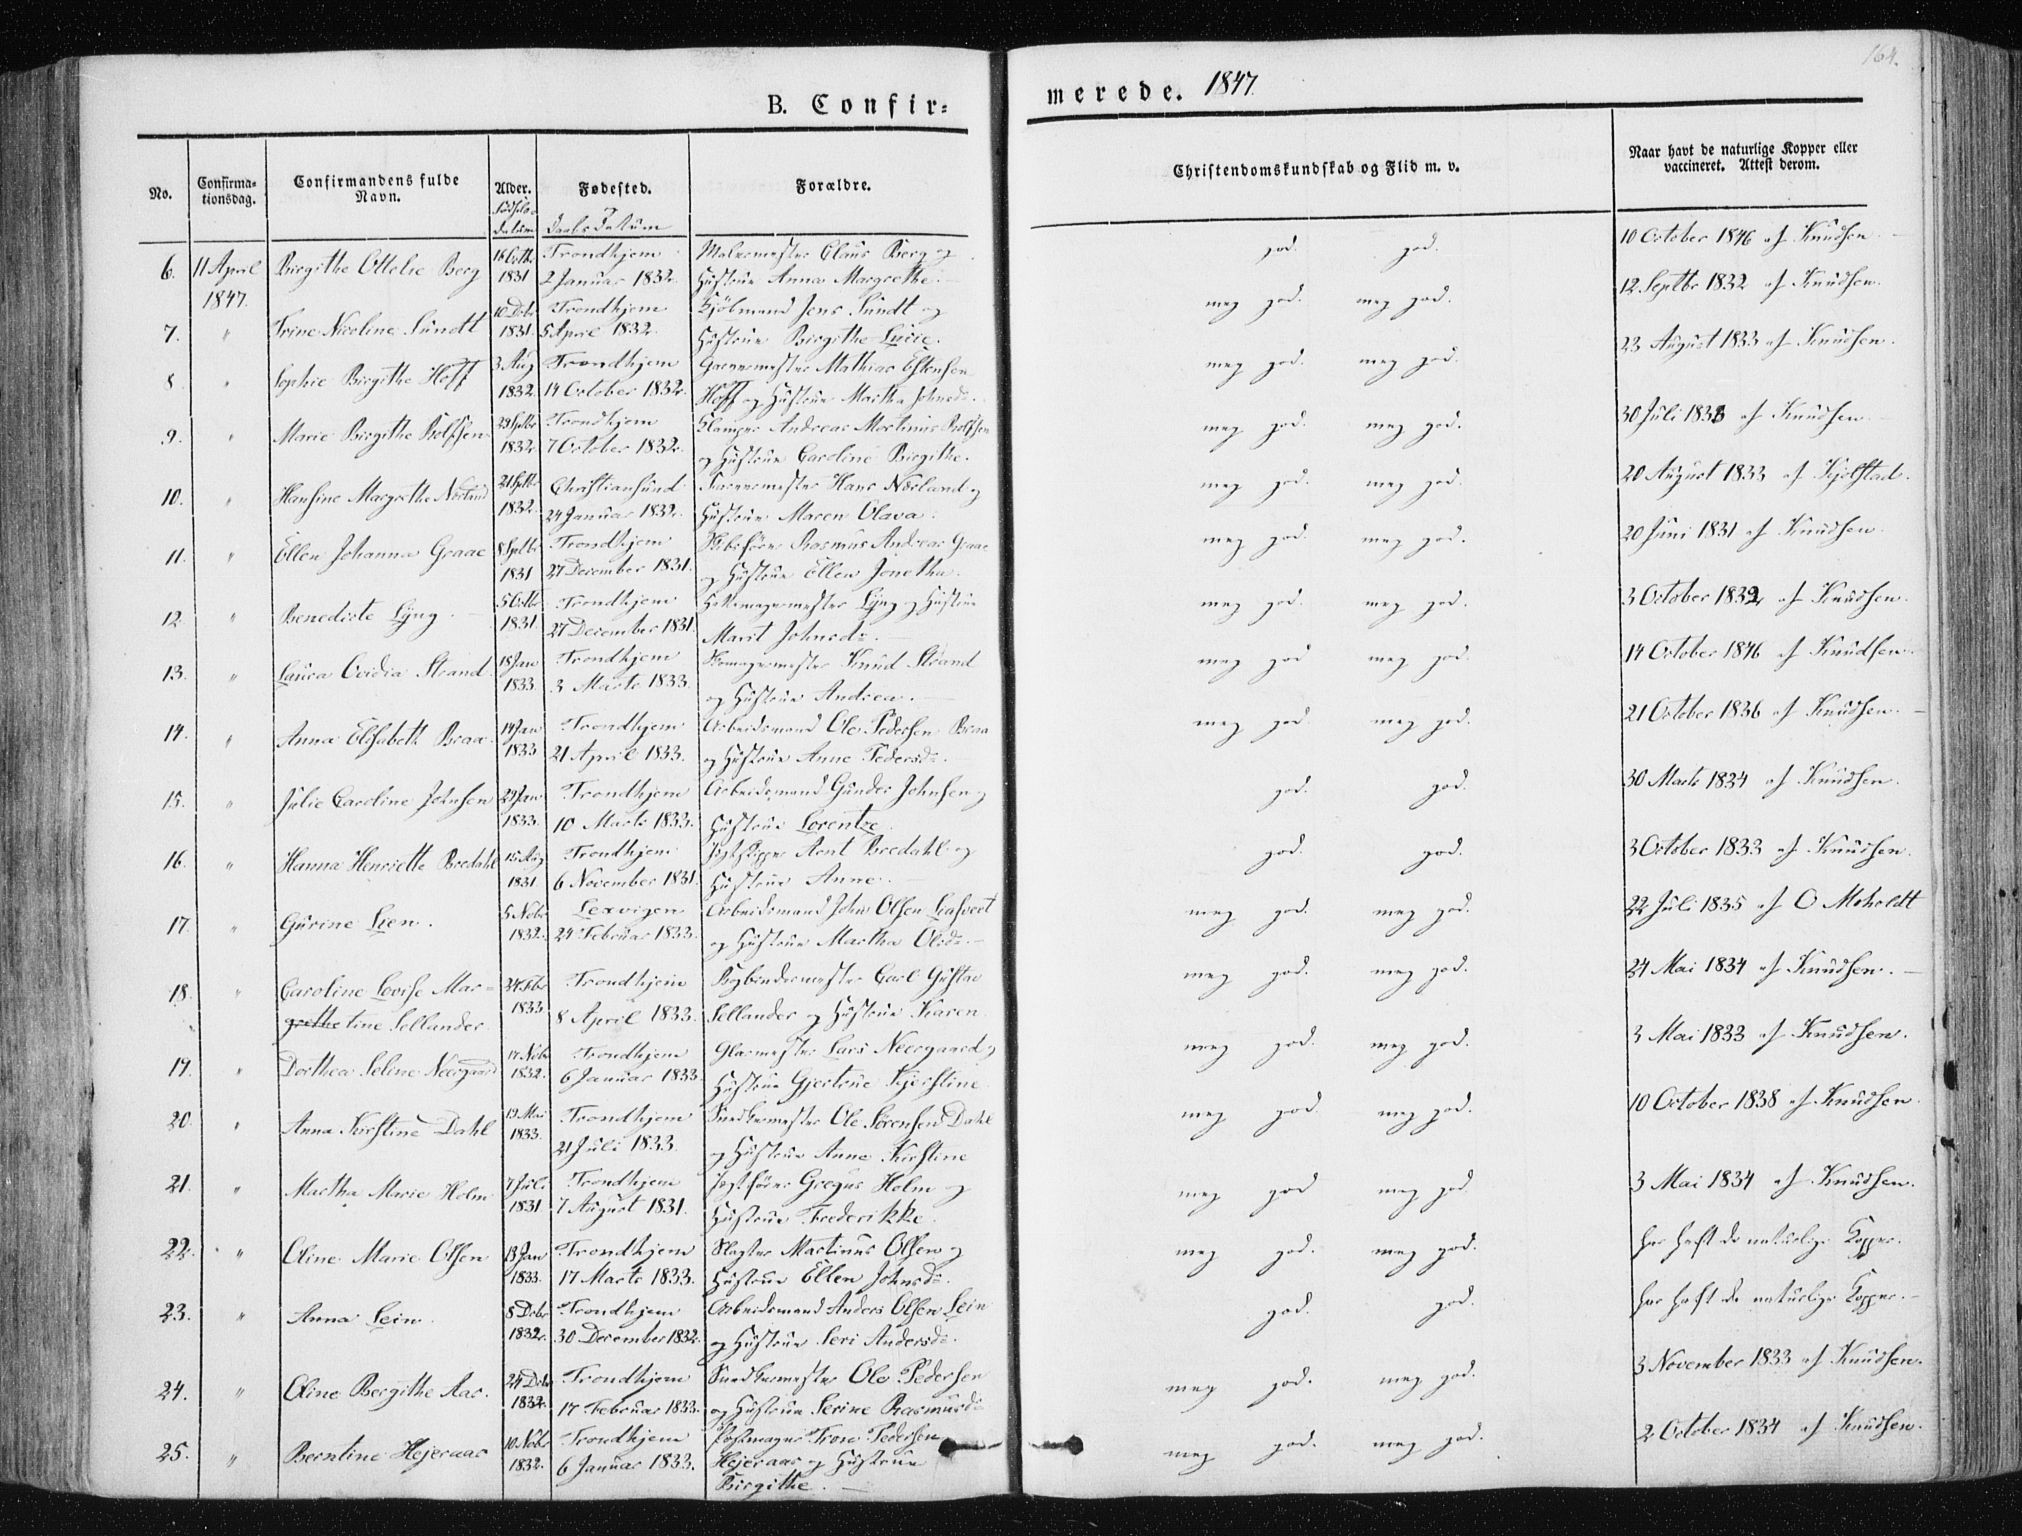 164.
B. Confir=
merede. 1847.
No.
Confirma-
tionsdag.
Confirmandens fulde
Navn.
Alder.
Fødsels-
datum
Fødested.
Daabsdatum
Forældre.
Christendomskundskab og Flid m. v.
Naar havt de naturlige Kopper eller
vaccineret. Attest derom.
6. 11 April Birgithe Ottelie Berg 16 Octbr Trondhjem Malermester Claus Berg og god. god. 10 October 1846 af Knudsen
1847. 1831 2 Januar 1832. Hustrue Anna Margrethe.
7. " Trine Nicoline Sundt 10 Debr Trondhjem Kjøbmand Jens Sundt og meg god. meg god. 12 Septbr 1832 af Knudsen.
1831. 5 April 1832. Hustrue Birgithe Lucie.
8 " Sophie Birgithe Hoff 3 Aug Trondhjem Garvermester Mathias Estensen meg god. meg god. 23 August 1833 af Knudsen.
1832. 14 October 1832. Hoff og Hustrue Martha Johnsd.
9. " Marie Birgithe Rolfsen 29 Septbr Trondhjem Klamper Andreas Martinus Rolfsen meg god. meg god. 30 Juli 1833 af Knudsen
1832 7 October 1832. og Hustrue Caroline Birgithe.
10. " Hansine Margrethe Nørland 21 Septbr Christiansund Hans Nørland og meg god. meg god. 20 August 1833 af Kjelstad.
1832. 24 Januar 1832. Hustrue Maren Olava.
11. " Ellen Johanna Graae 8 Septbr Trondhjem Skibsfører Rasmus Andreas Graae meg god. meg god. 20 Juni 1831 af Knudsen.
1831 27 December 1831. og Hustrue Ellen Jonetha.
12 " Benedicte Lyng. 5 Octbr Trondhjem Hattemagermester Lyng og Hustrue meg god. meg god. 3 October 1832 af Knudsen.
1831. 27 December 1831. Marit Johnsd.
13. " Laura Ovidia Strand 18 Jan Trondhjem Knud Strand meg god meg god. 14 October 1846 af Knudsen
1833 3 Marts 1833. og Hustrue Andrea.
14. " Anna Elisabeth Braa 14 Jan Trondhjem Arbeidsmand Ole Pedersen Braa meg god. meg god. 21 October 1836 af Knudsen.
1833 21 April 1833. og Hustrue Anne Pedersd.
15. " Julie Caroline Johnsen 29 Jan Trondhjem Arbeidsmand Gunder Johnsen og god. god. 30 Marts 1834 af Knudsen.
1833. 10 Marts 1833. Hustrue Lorentze.
16. " Hanna Henriette Bredahl 15 Aug Trondhjem Jegtskipper Arnt Bredahl og god. god. 3 October 1833 af Knudsen.
1831. 6 November 1831. Hustrue Anne.
17. " Gurine Lien. 5 Nobr Lexvigen Arbeidsmand John Olsen meg god. meg god. 22 Juli 1835 af O Moholdt
1832. 24 Februar 1833. og Hustrue Martha Olsd.
18. " Caroline Lovise Mar= 24 Febr Trondhjem Bogbindermester Carl Gustav meg god. meg god. 24 Mai 1834 af Knudsen.
grethe tine Sellander 1833. 8 April 1833. Sellander og Hustrue Karen
19. " Dorthea Seline Neergaard 17 Nobr Trondhjem Glarmester Lars Neergaard og meg god. meg god. 3 Mai 1833 af Knudsen.
1832. 6 Januar 1833. Hustrue Gjertrue Kjerstine
20. " Anna Kirstine Dahl 19 Mai Trondhjem Snedkermester Ole Sørensen Dahl meg god. meg god. 10 October 1838 af Knudsen
1833. 21 Juli 1833. og Hustrue Anne Kirstine
21. " Martha Marie Holm 7 Juli Trondhjem Jegtfører Gregus Holm og meg god meg god 3 Mai 1834 af Knudsen.
1831 7 August 1831. Hustrue Frederikke.
22. " Oline Marie Olsen 13 Jan Trondhjem Slagter Martinus Olsen og meg god. meg god. har haft de naturlige Kopper.
1833. 17 Marts 1833. Hustrue Ellen Johnsd.
23. " Anna Lein. 8 Debr Trondhjem Arbeidsmand Anders Olsen Lein god. god. har haft de naturlige Kopper.
1832. 30 December 1832. og Hustrue Seri Andersd.
24. " Oline Bergithe Aas. 24 Debr Trondhjem Snedkermester Ole Pedersen meg god. meg god. 3 November 1833 af Knudsen.
1832. 17 Februar 1833. og Hustrue Serine Rasmusd
25. " Berntine Hejeraas 10 Nobr Trondhjem Tron Pedersen meg god. meg god. 2 October 1834 af Knudsen.
1832. 6 Januar 1833. Hejeraas og Hustrue
Birgithe.